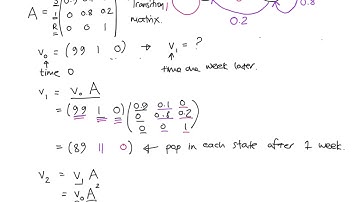 S 0.9 0.1 0
A = I 0 0.8 0.2
R 0 0 1
Transition
matrix.
0.2
0.8
v₀ = (99 1 0) → v₁ = ?
time 0
time one week later.
v₁ = v₀ A
= (99 1 0) (0.9 0.1 0
0 0.8 0.2
0 0 1)
= (89 11 0) ← pop in each state after 1 week.
v₂ = v₁ A
= v₀ A²